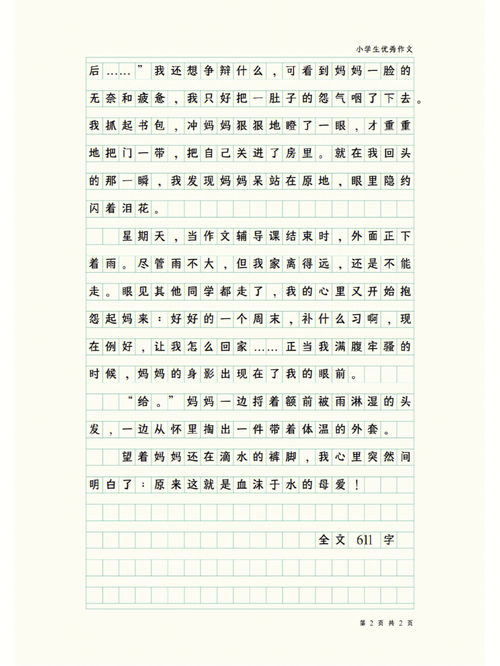 小学生优秀作文
后……”我还想争辩什么，可看到妈妈一脸的
无奈和疲惫，我只好把一肚子的怨气咽了下去。
我抓起书包，冲妈妈狠狠地瞪了一眼，才重重
地把门一带，把自己关进了房里。就在我回头
的那一瞬，我发现妈妈呆站在原地，眼里隐约
闪着泪花。
星期天，当作文辅导课结束时，外面正下
着雨。尽管雨不大，但我家离得远，还是不能
走。眼见其他同学都走了，我的心里又开始抱
怨起妈来：好好的一个周末，补什么习啊，现
在例好，让我怎么回家……正当我满腹牢骚的
时候，妈妈的身影出现在了我的眼前。
“给。”妈妈一边捋着额前被雨淋湿的头
发，一边从怀里掏出一件带着体温的外套。
望着妈妈还在滴水的裤脚，我心里突然间
明白了：原来这就是血沫于水的母爱！
全文 611 字
第 2 页 共 2 页